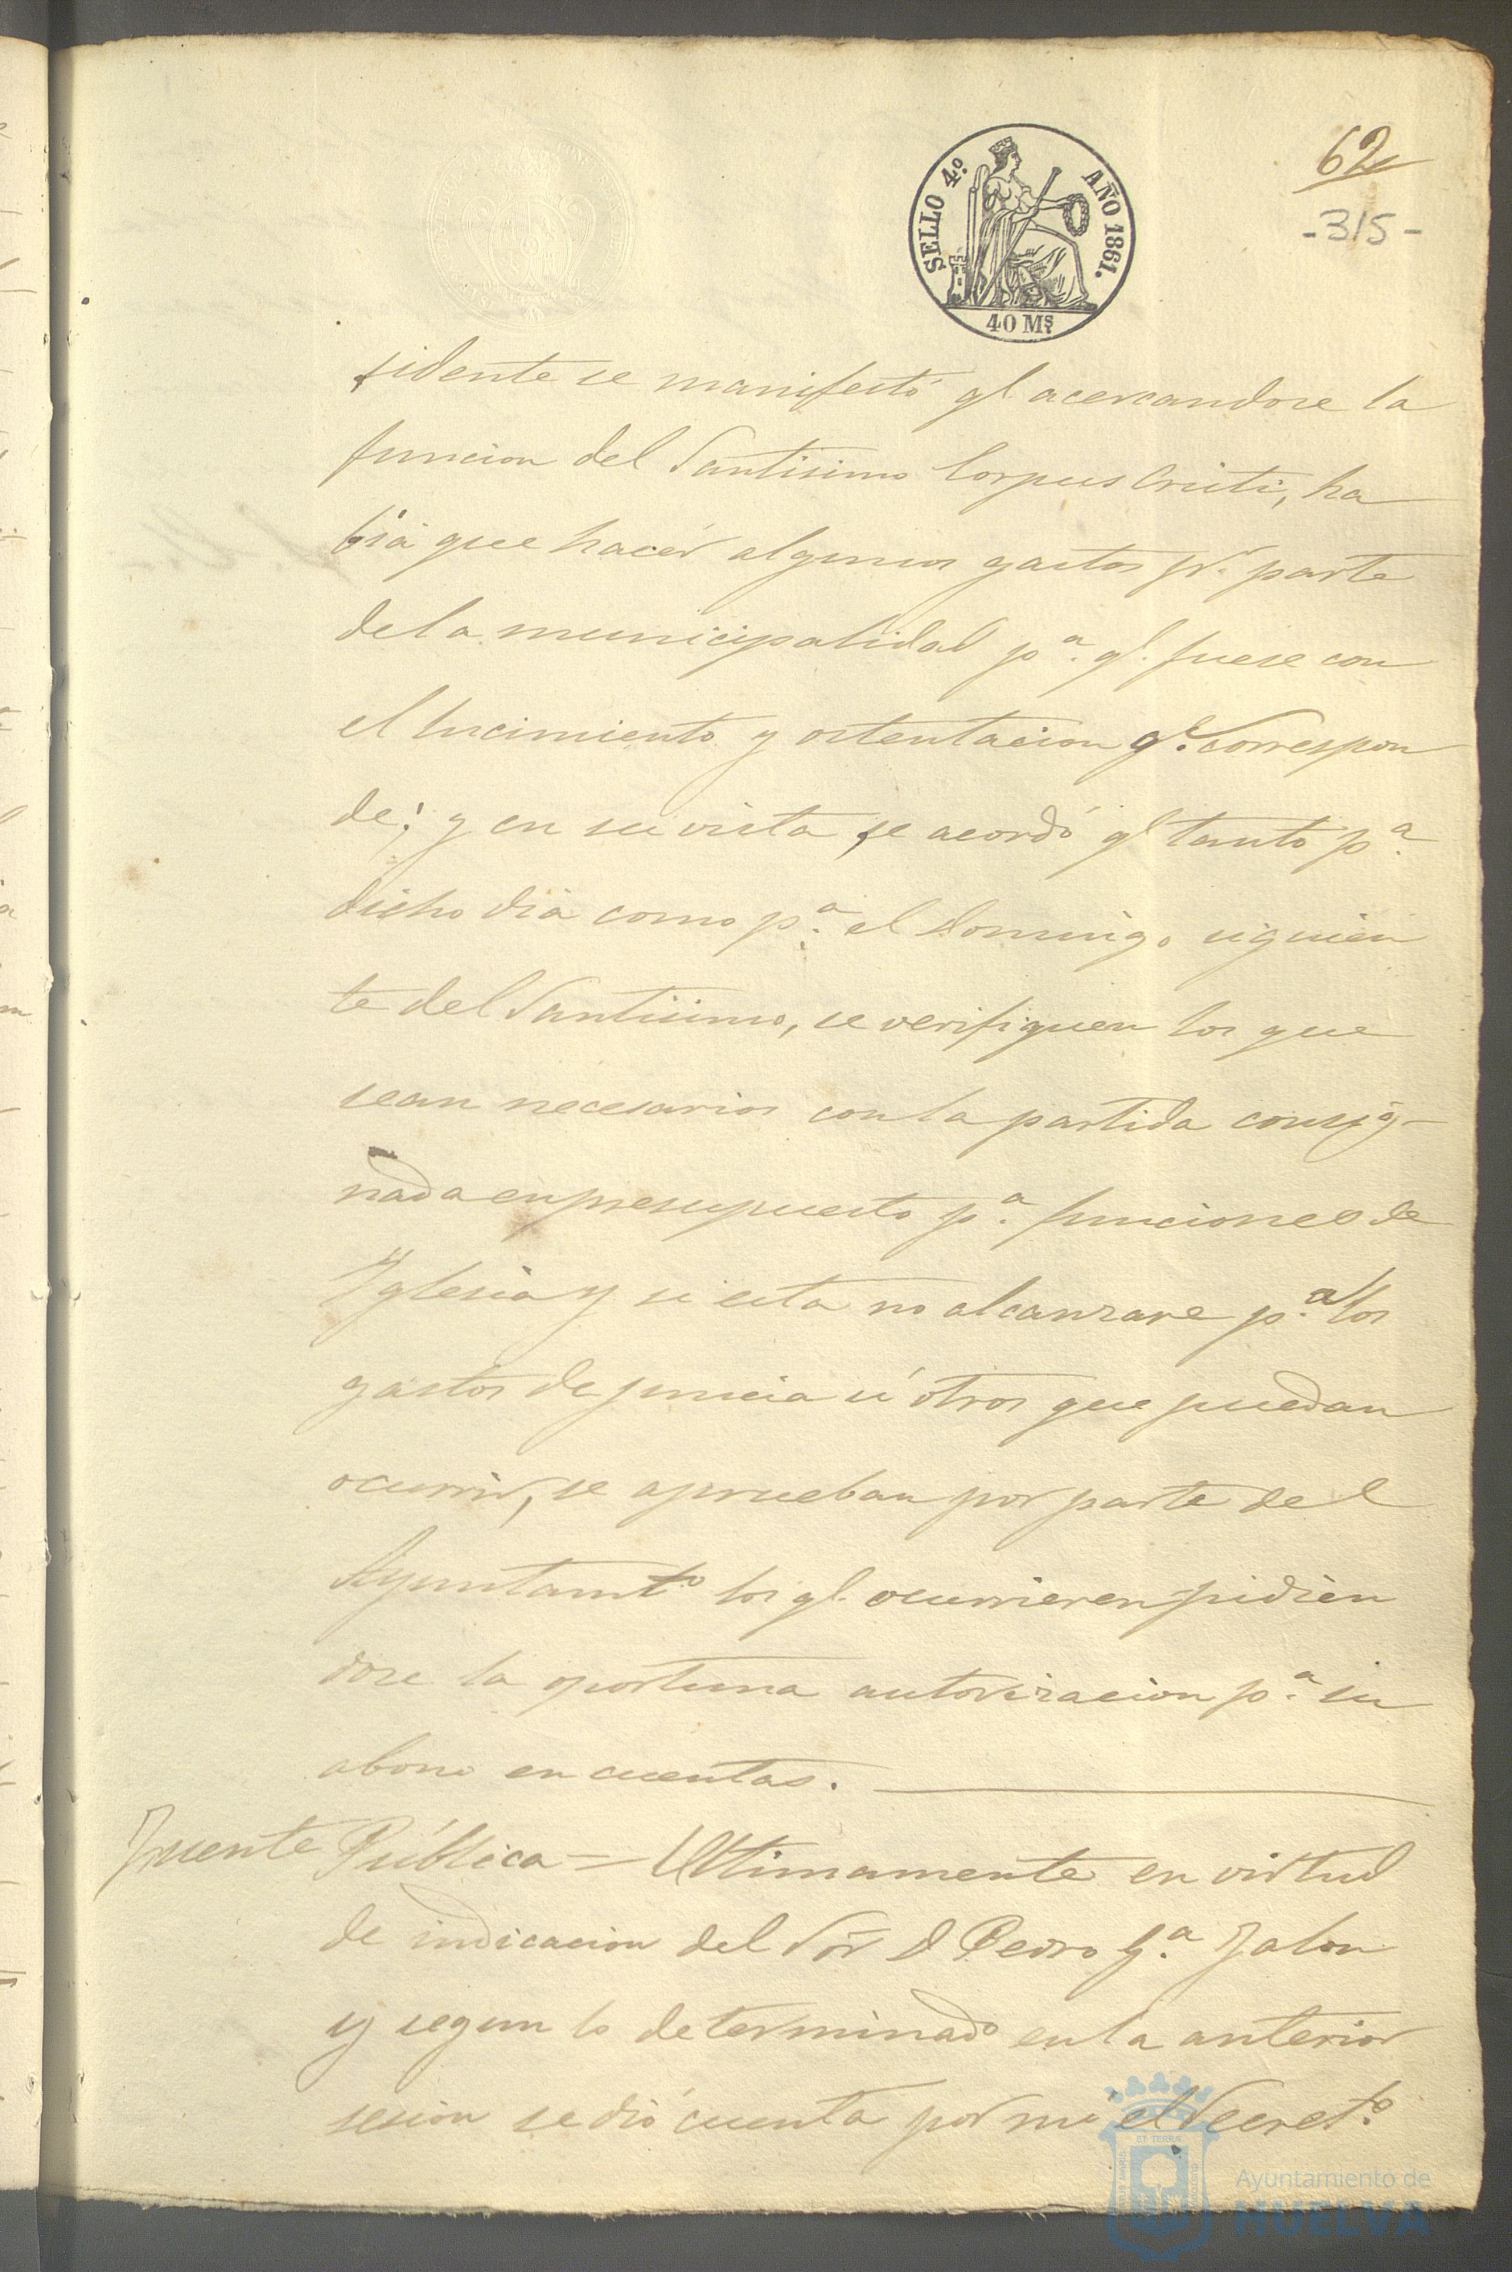 SELLO 4.º AÑO 1861.
40 Ms.
62
-315-
sidente se manifestó q.e acercandose la
funcion del Santisimo Corpus Cristi, ha
bia que hacer algunos gastos p.r parte
de la municipalidad p.a q.e fuese con
el lucimiento y ostentacion q.e correspon
de; y en su vista, se acordó q.e tanto p.a
dicho dia como p.a el Domingo siguien
te del Santisimo, se verifiquen los que
sean necesarios con la partida consig-
nada en presupuesto p.a funciones de
Yglesia y si esta no alcanzare p.a los
gastos de juncia ú otros que puedan
ocurrir, se aprueban por parte del
Ayuntamt.o los q.e ocurrieren pidien
dose la oportuna autorizacion p.a su
abono en cuentas.
Fuente Pública = Ultimamente en virtud
de indicacion del Sor D Pedro G.a Jalon
y segun lo determinado en la anterior
sesion se dió cuenta por mi el Secret.o
ET TERRÆ
Ayuntamiento de
HUELVA